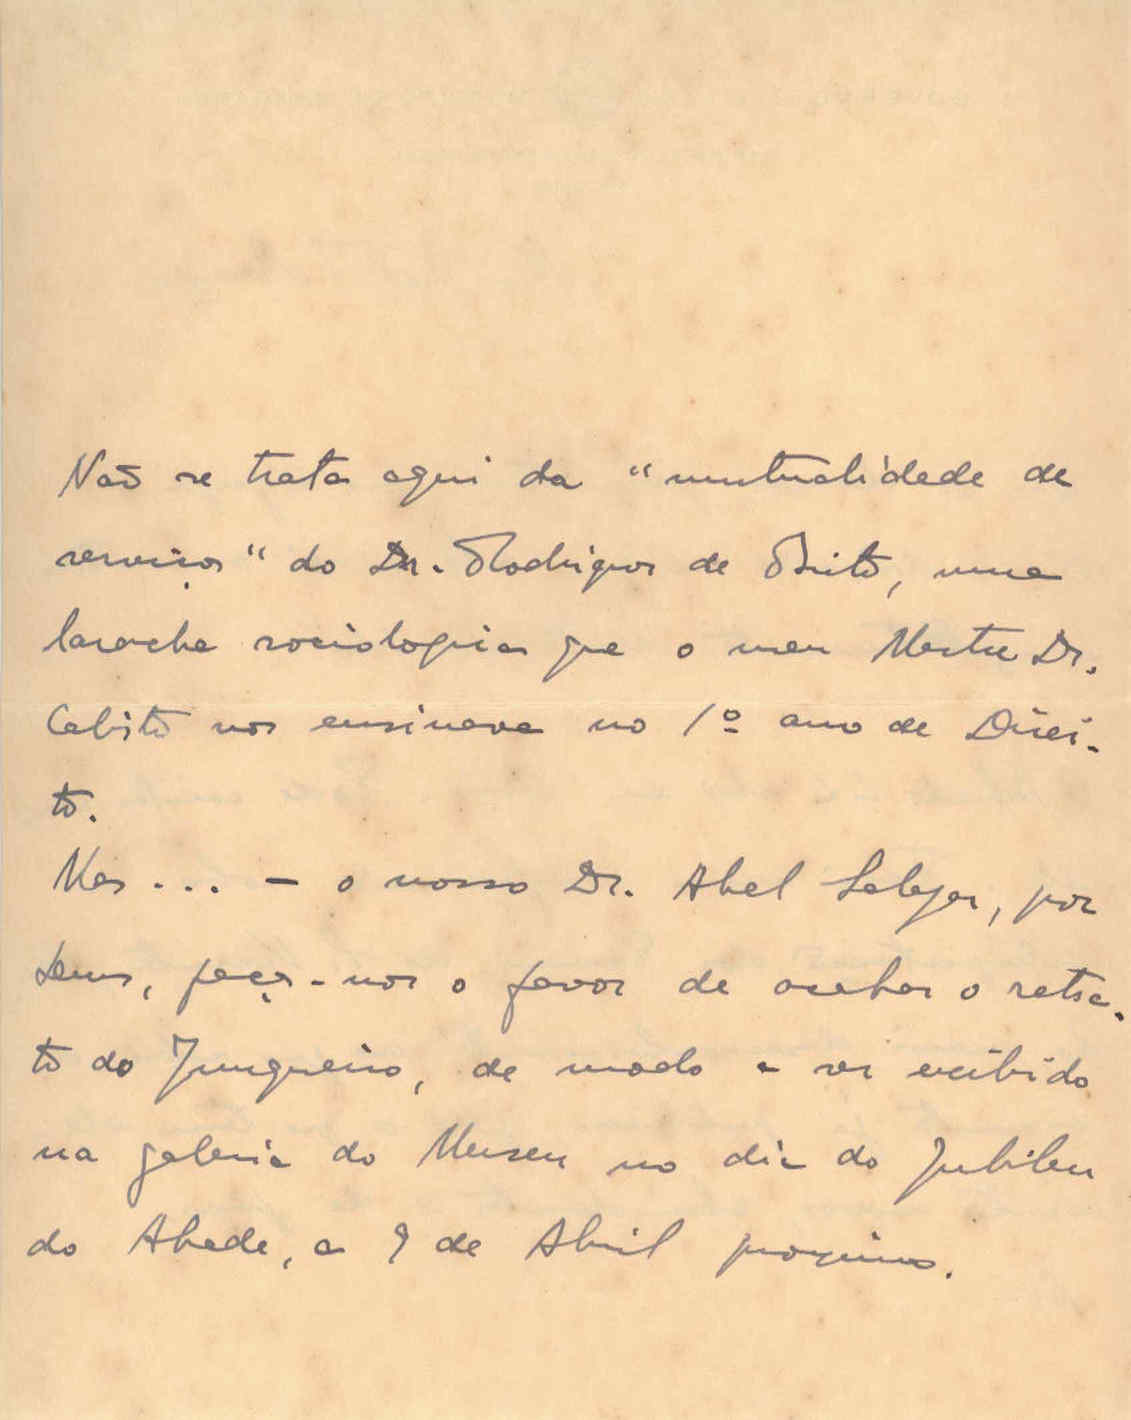 Não se trata aqui da "mutualidade de
serviços" do Dr. Rodrigues de Brito, uma
laracha sociologica que o meu Mestre Dr.
Cabito nos ensinava no 1º ano de Direi-
to.
Mas ... - o nosso Dr. Abel Salazar, por
Deus, faça-nos o favor de acabar o retra-
to do Junqueiro, de modo a ser exibido
na galeria do Museu no dia do Jubileu
do Abade, a 9 de Abril proximo.